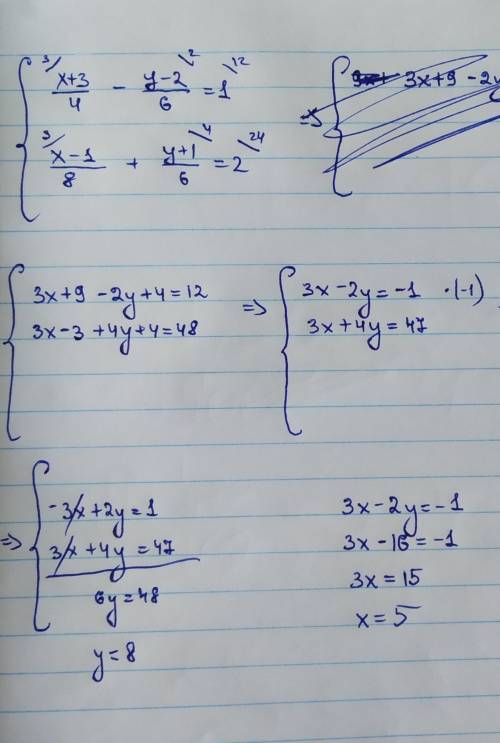 3/ x+3/4 - y-2/6 \2 = 1 \12
3x+9 - 2y
3/ x-1/8 + y+1/6 \4 = 2 \24 =>
3x+9 -2y+4=12
3x-3 +4y+4=48
=> 3x-2y=-1 ·(-1)
3x+4y=47
=> -3x+2y=1
3x+4y=47
6y=48
y=8
3x-2y=-1
3x-16=-1
3x=15
x=5